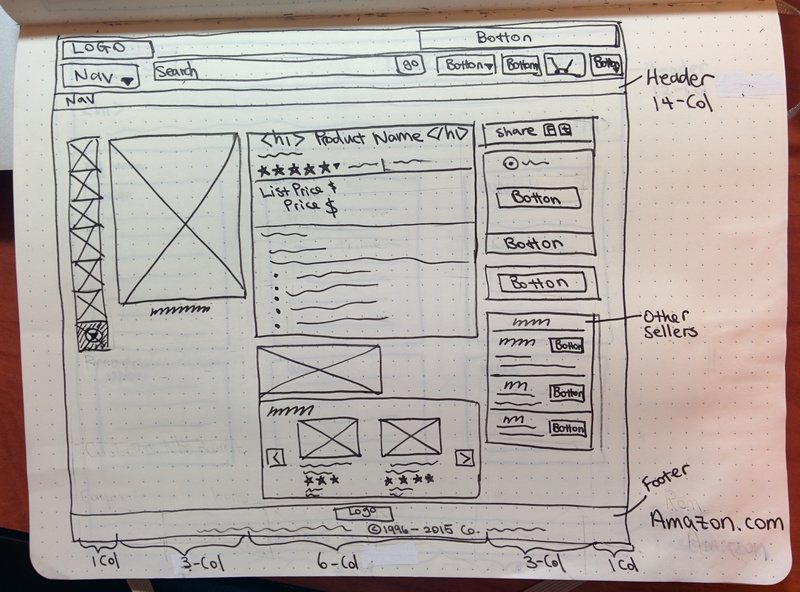 LOGO
Botton
Nav
Search
go
Botton
Botton
Botton
Nav
Header
14-Col
<h1> Product Name </h1>
share
List Price $
Price $
Botton
Botton
Botton
Other
Sellers
Botton
Botton
Botton
<
>
Footer
Logo
©1996-2015 Co.
Amazon.com
1Col
3-Col
6-Col
3-Col
1Col